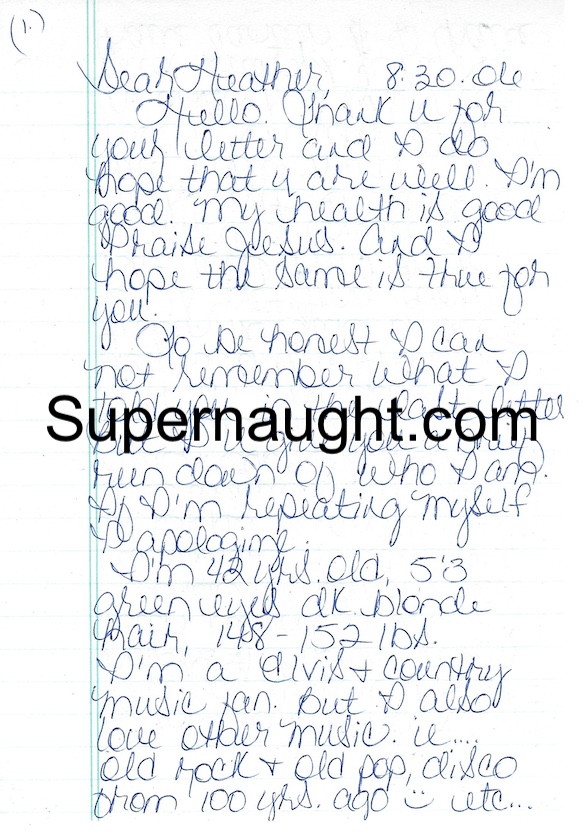 (1.)
Dear Heather, 8.30.06
Hello. Thank u for
your letter and I do
hope that u are well. I'm
good. My health is good
Praise Jesus. And I
hope the same is true for
you.
To be honest I can
not remember what I
told you in the last letter
Supernaught.com
so I'll give you a brief
run down of who I am.
If I'm repeating myself
I apologize.
I'm 42 yrs. old, 5'3
green eyes dk. blonde
hair, 148-152 lbs.
I'm a Elvis + country
music fan. But I also
love other music. ie....
old rock + old pop, disco
from 100 yrs. ago :) etc...